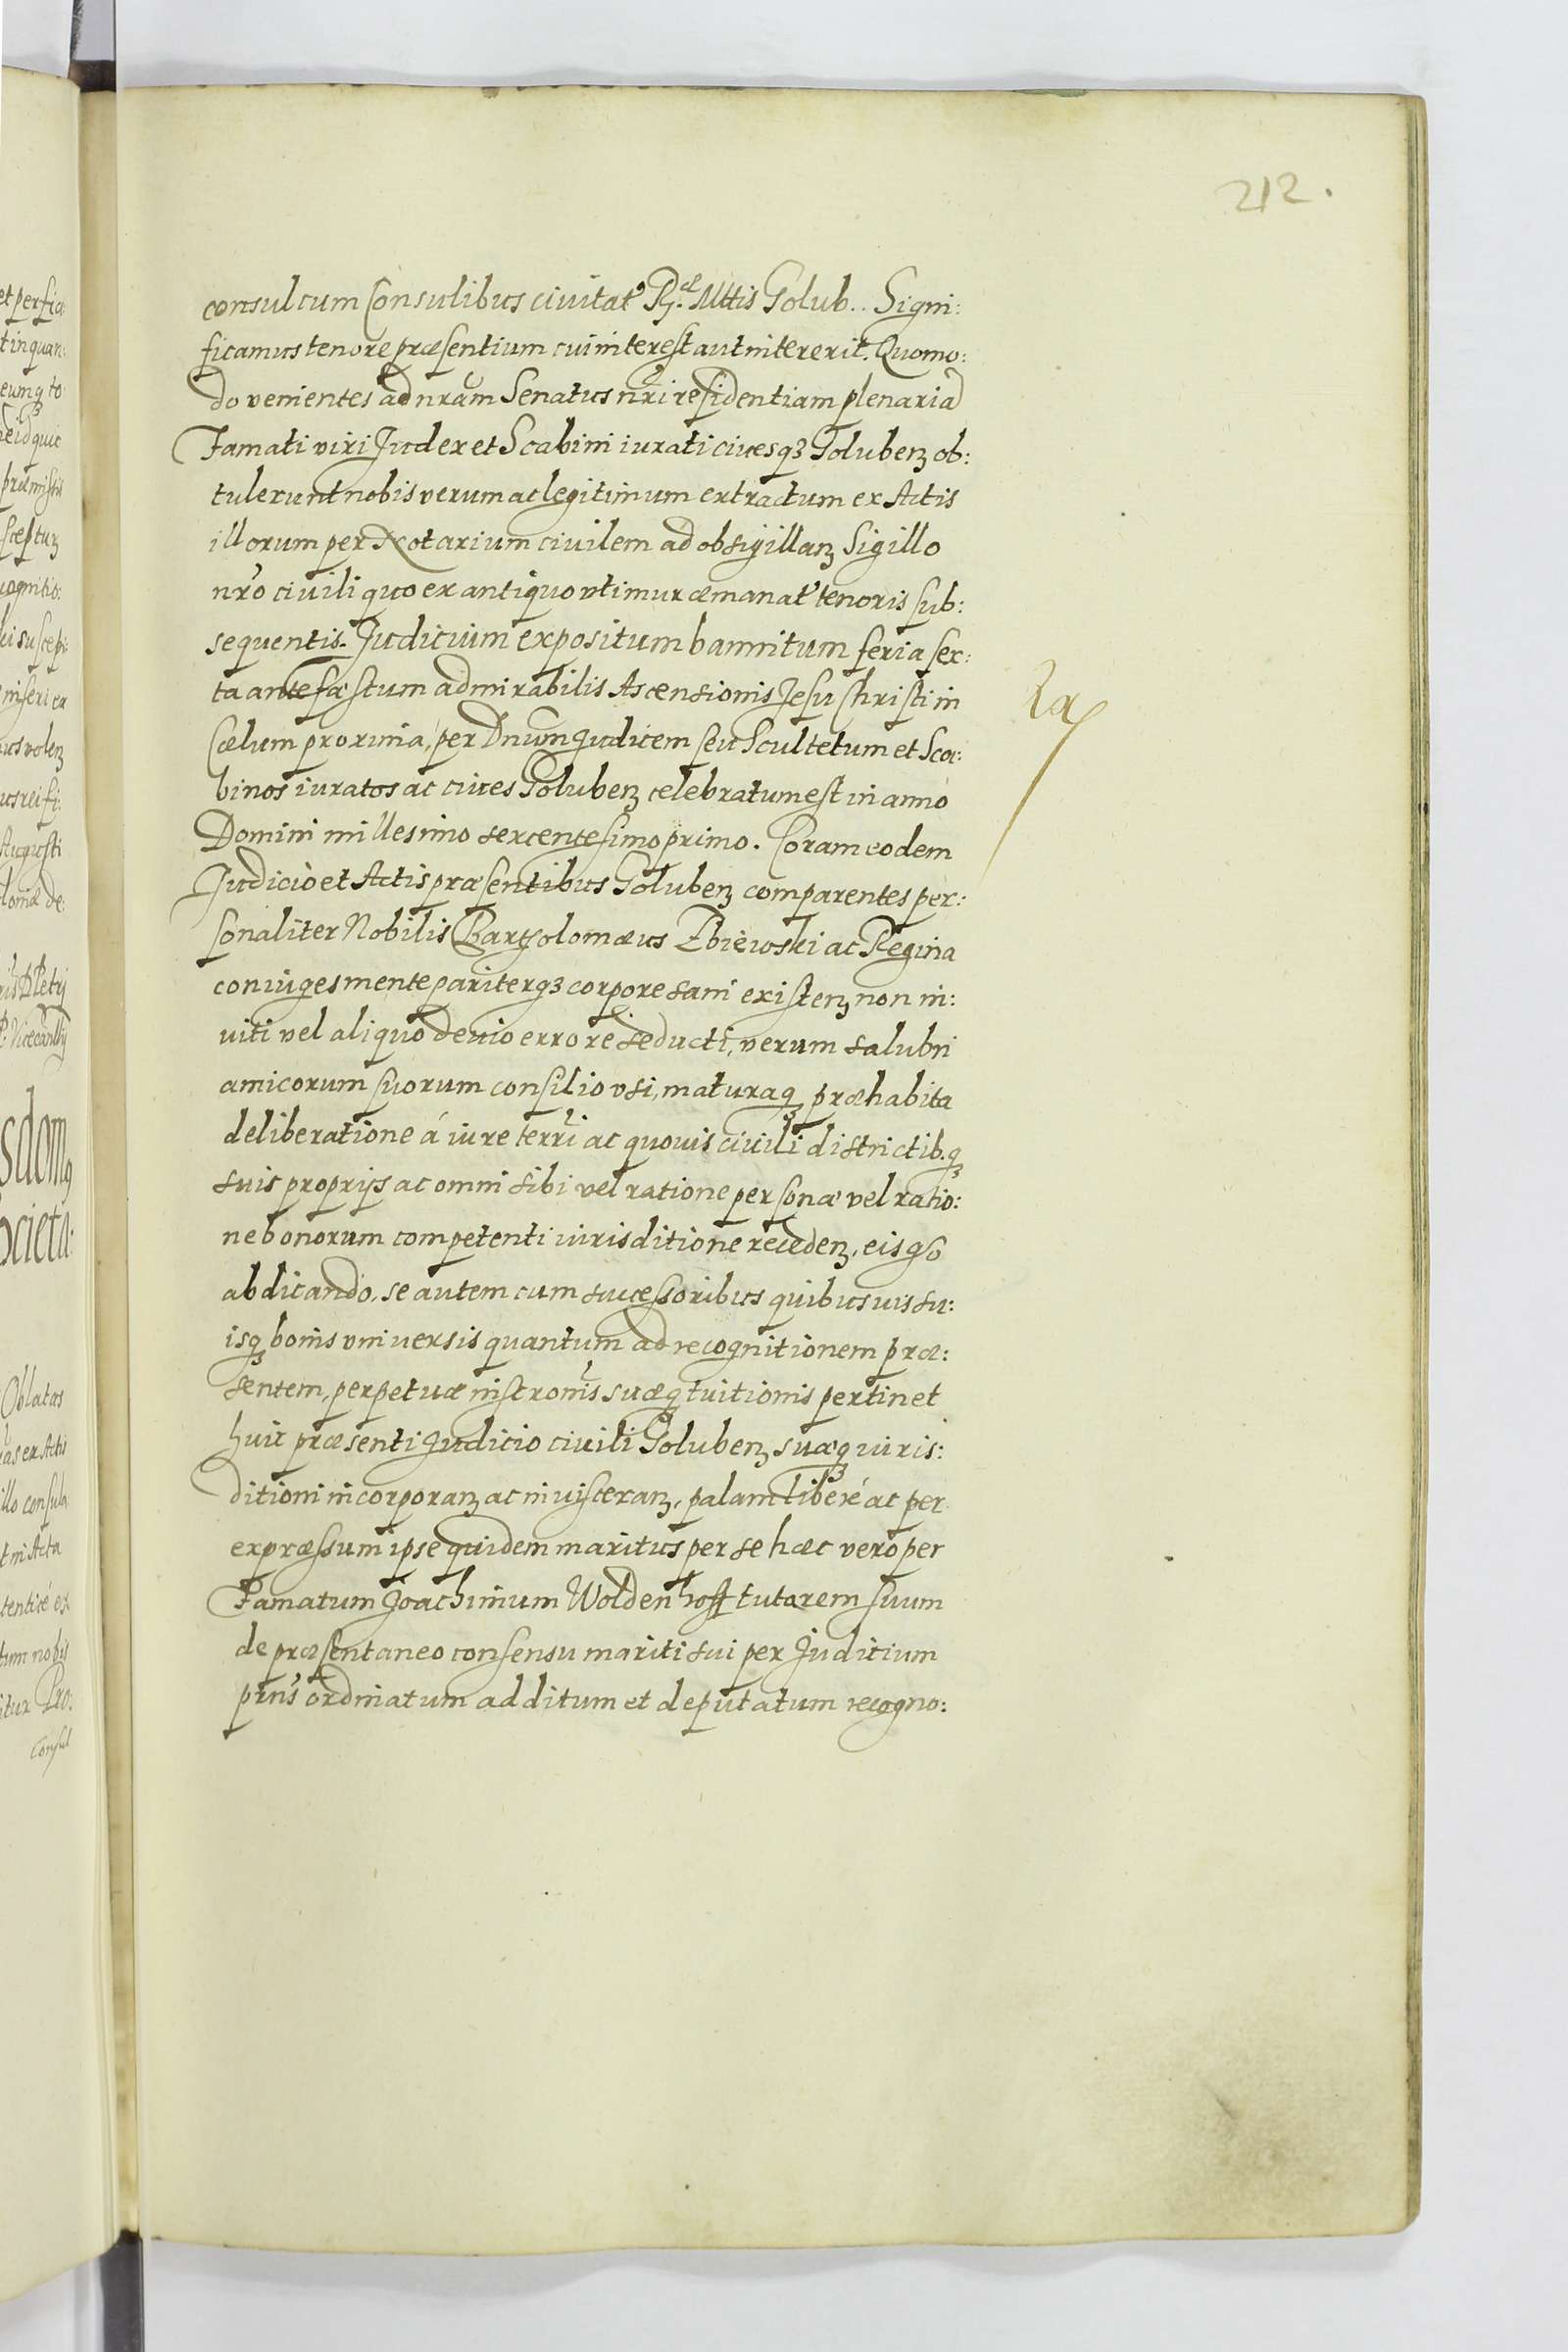 212.
consul cum Consulibus ciuitat' R.æ Mttis Golub.. Signi:
ficamus tenore præsentium cui interest aut intererit. Quomo:
do venientes ad nram Senatus nri residentiam plenaria
Famati viri Judex et Scabini iurati ciuesqз Golubenз ob:
tulerunt nobis verum ac legitimum extractum ex Actis
illorum per Notarium ciuilem ad obsigillanз Sigillo
nro ciuili quo ex antiquo vtimur æmanat' tenoris sub:
sequentis. Judicium expositum bannitum feria sex:
ta ante fæstum admirabilis Ascensionis Jesu Christi in
Cælum proxima, per Dnum Judicem seu Scultetum et Sca:
binos iuratos ac ciues Golubenз celebratum est in anno
Domini millesimo sexcentesimo primo. Coram eodem
Judicio et Actis præsentibus Golubenз comparentes per:
sonaliter Nobilis Bartholomæus Zbiewski ac Regina
coniuges mente pariterqз corpore sani existenз non in:
uiti vel aliquo deuio errore seducti, verum salubri
amicorum suorum consilio vsi, maturaqз præhabita
deliberatione á iure terri ac quouis ciuili districtib.qз
suis proprijs ac omni sibi vel ratione personæ vel ratio:
ne bonorum competenti iurisditione recedenз, eisqз
abdicando, se autem cum successoribus quibusuis su:
isqз bonis vniuersis quantum ad recognitionem præ:
sentem, perpetuæ inscronis suæqз tuitionis pertinet
huic præsenti Judicio ciuili Golubenз suæqз iuris:
ditioni incorporanз ac inuisceranз, palam liberé ac per
expræssum ipse quidem maritus per se hæc vero per
Famatum Joachimum Woldenhoff tutorem suum
de præsentaneo consensu mariti sui per Judicium
prius ordinatum additum et deputatum recogno: